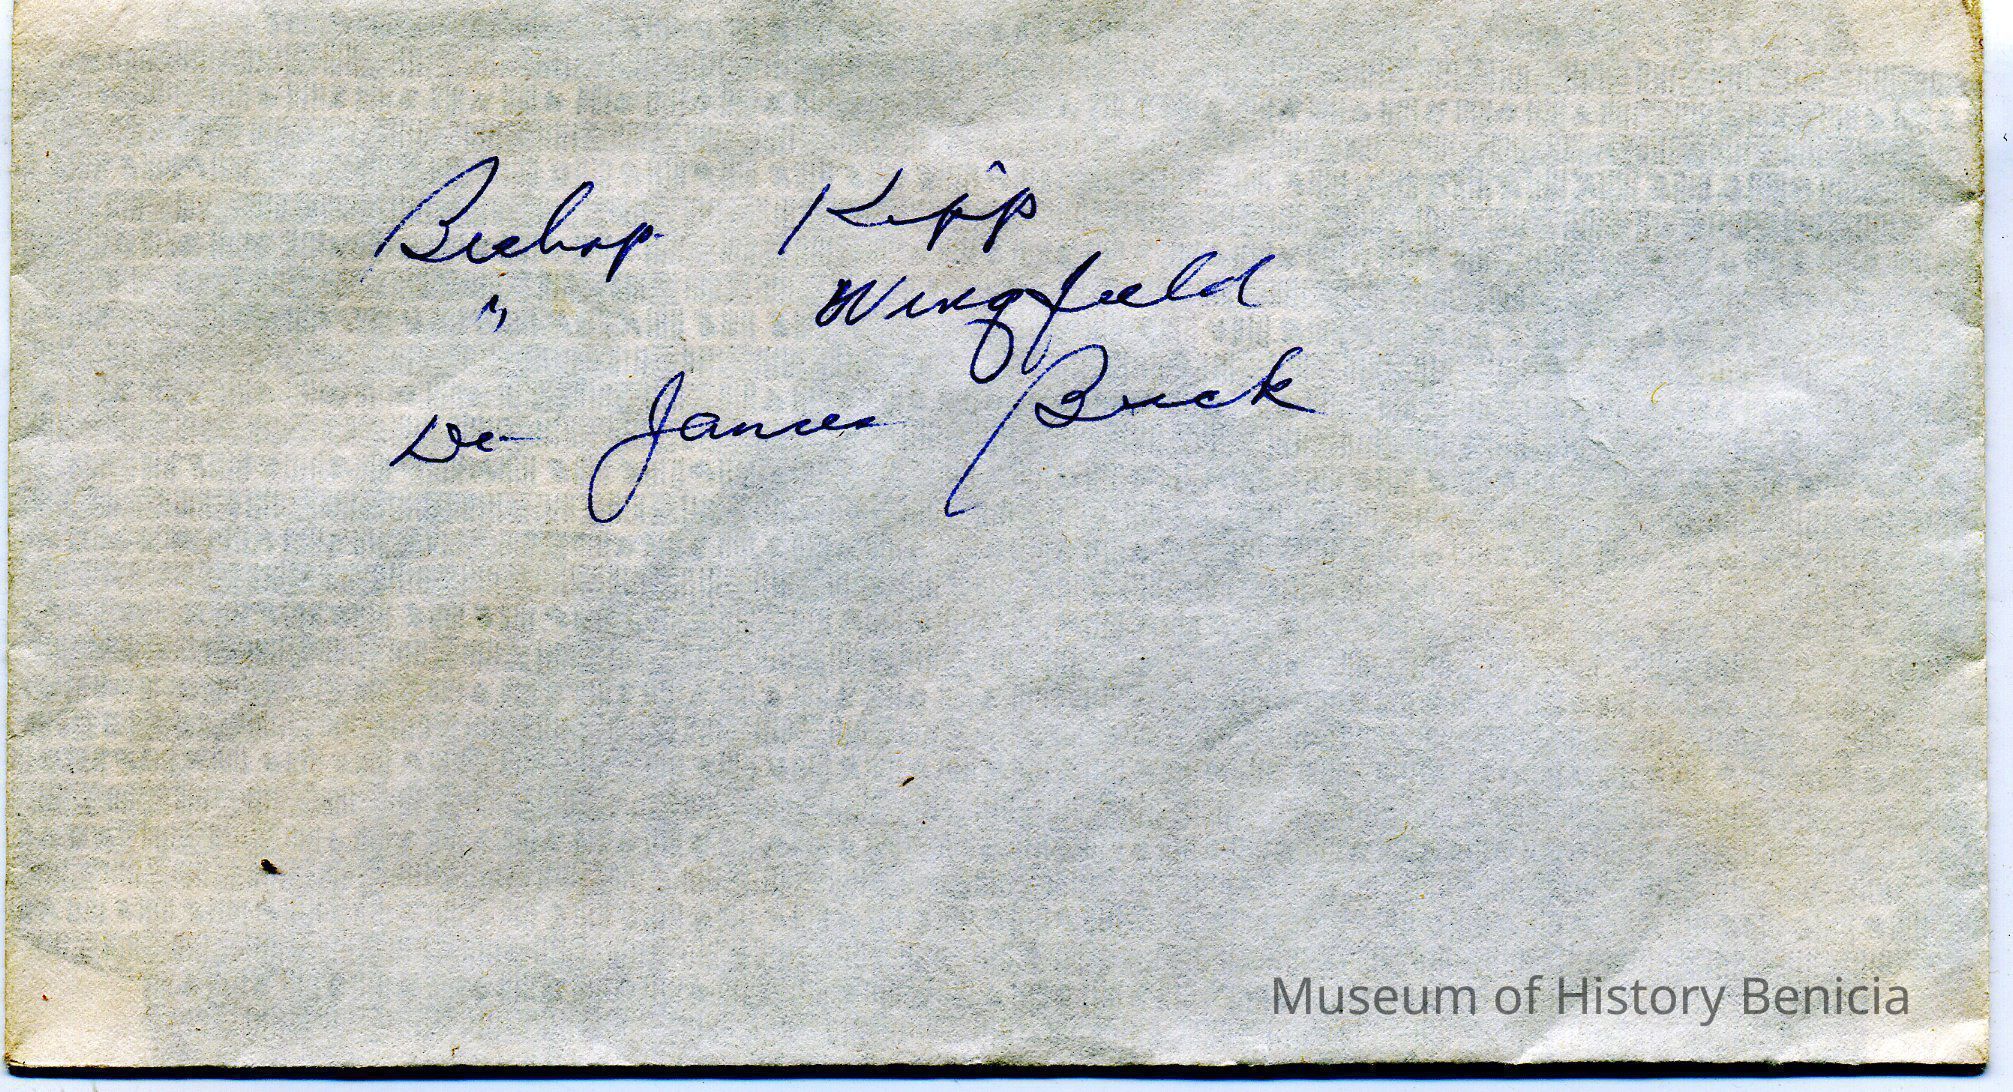 Bishop Kipp
" Wingfield
Dr James Buck
Museum of History Benicia